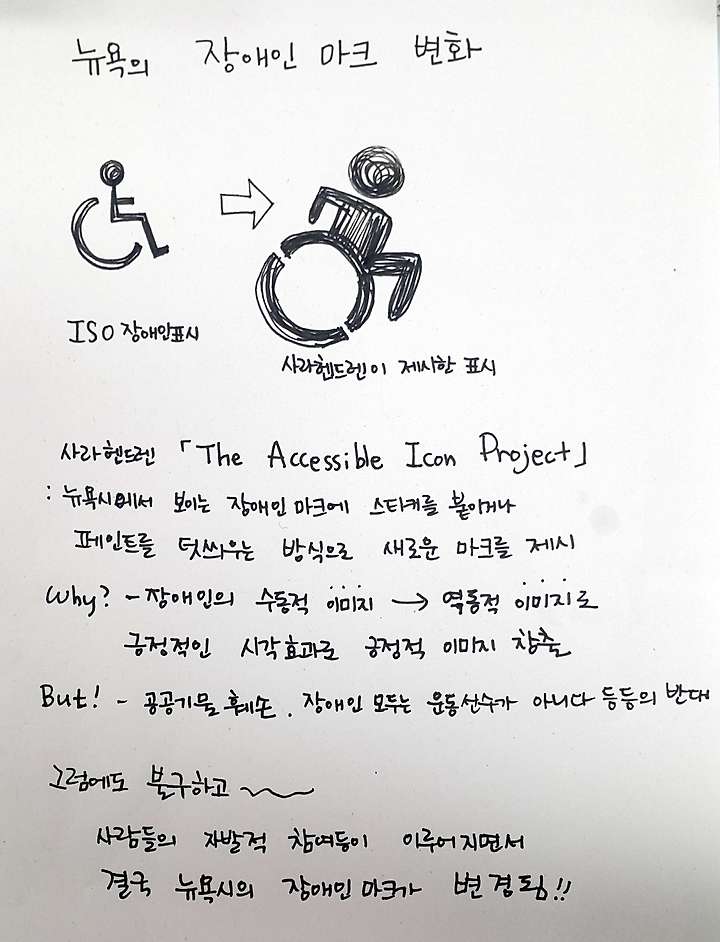 뉴욕의 장애인 마크 변화
ISO 장애인표시
사라헨드렌이 제시한 표시
사라헨드렌 「The Accessible Icon Project」
: 뉴욕시에서 보이는 장애인 마크에 스티커를 붙이거나
페인트를 덧씌우는 방식으로 새로운 마크를 제시
Why? - 장애인의 수동적 이미지 → 역동적 이미지로
긍정적인 시각효과로 긍정적 이미지 창출
But! - 공공기물 훼손, 장애인 모두는 운동선수가 아니다 등등의 반대
그럼에도 불구하고
사람들의 자발적 참여등이 이루어지면서
결국 뉴욕시의 장애인 마크가 변경됨!!